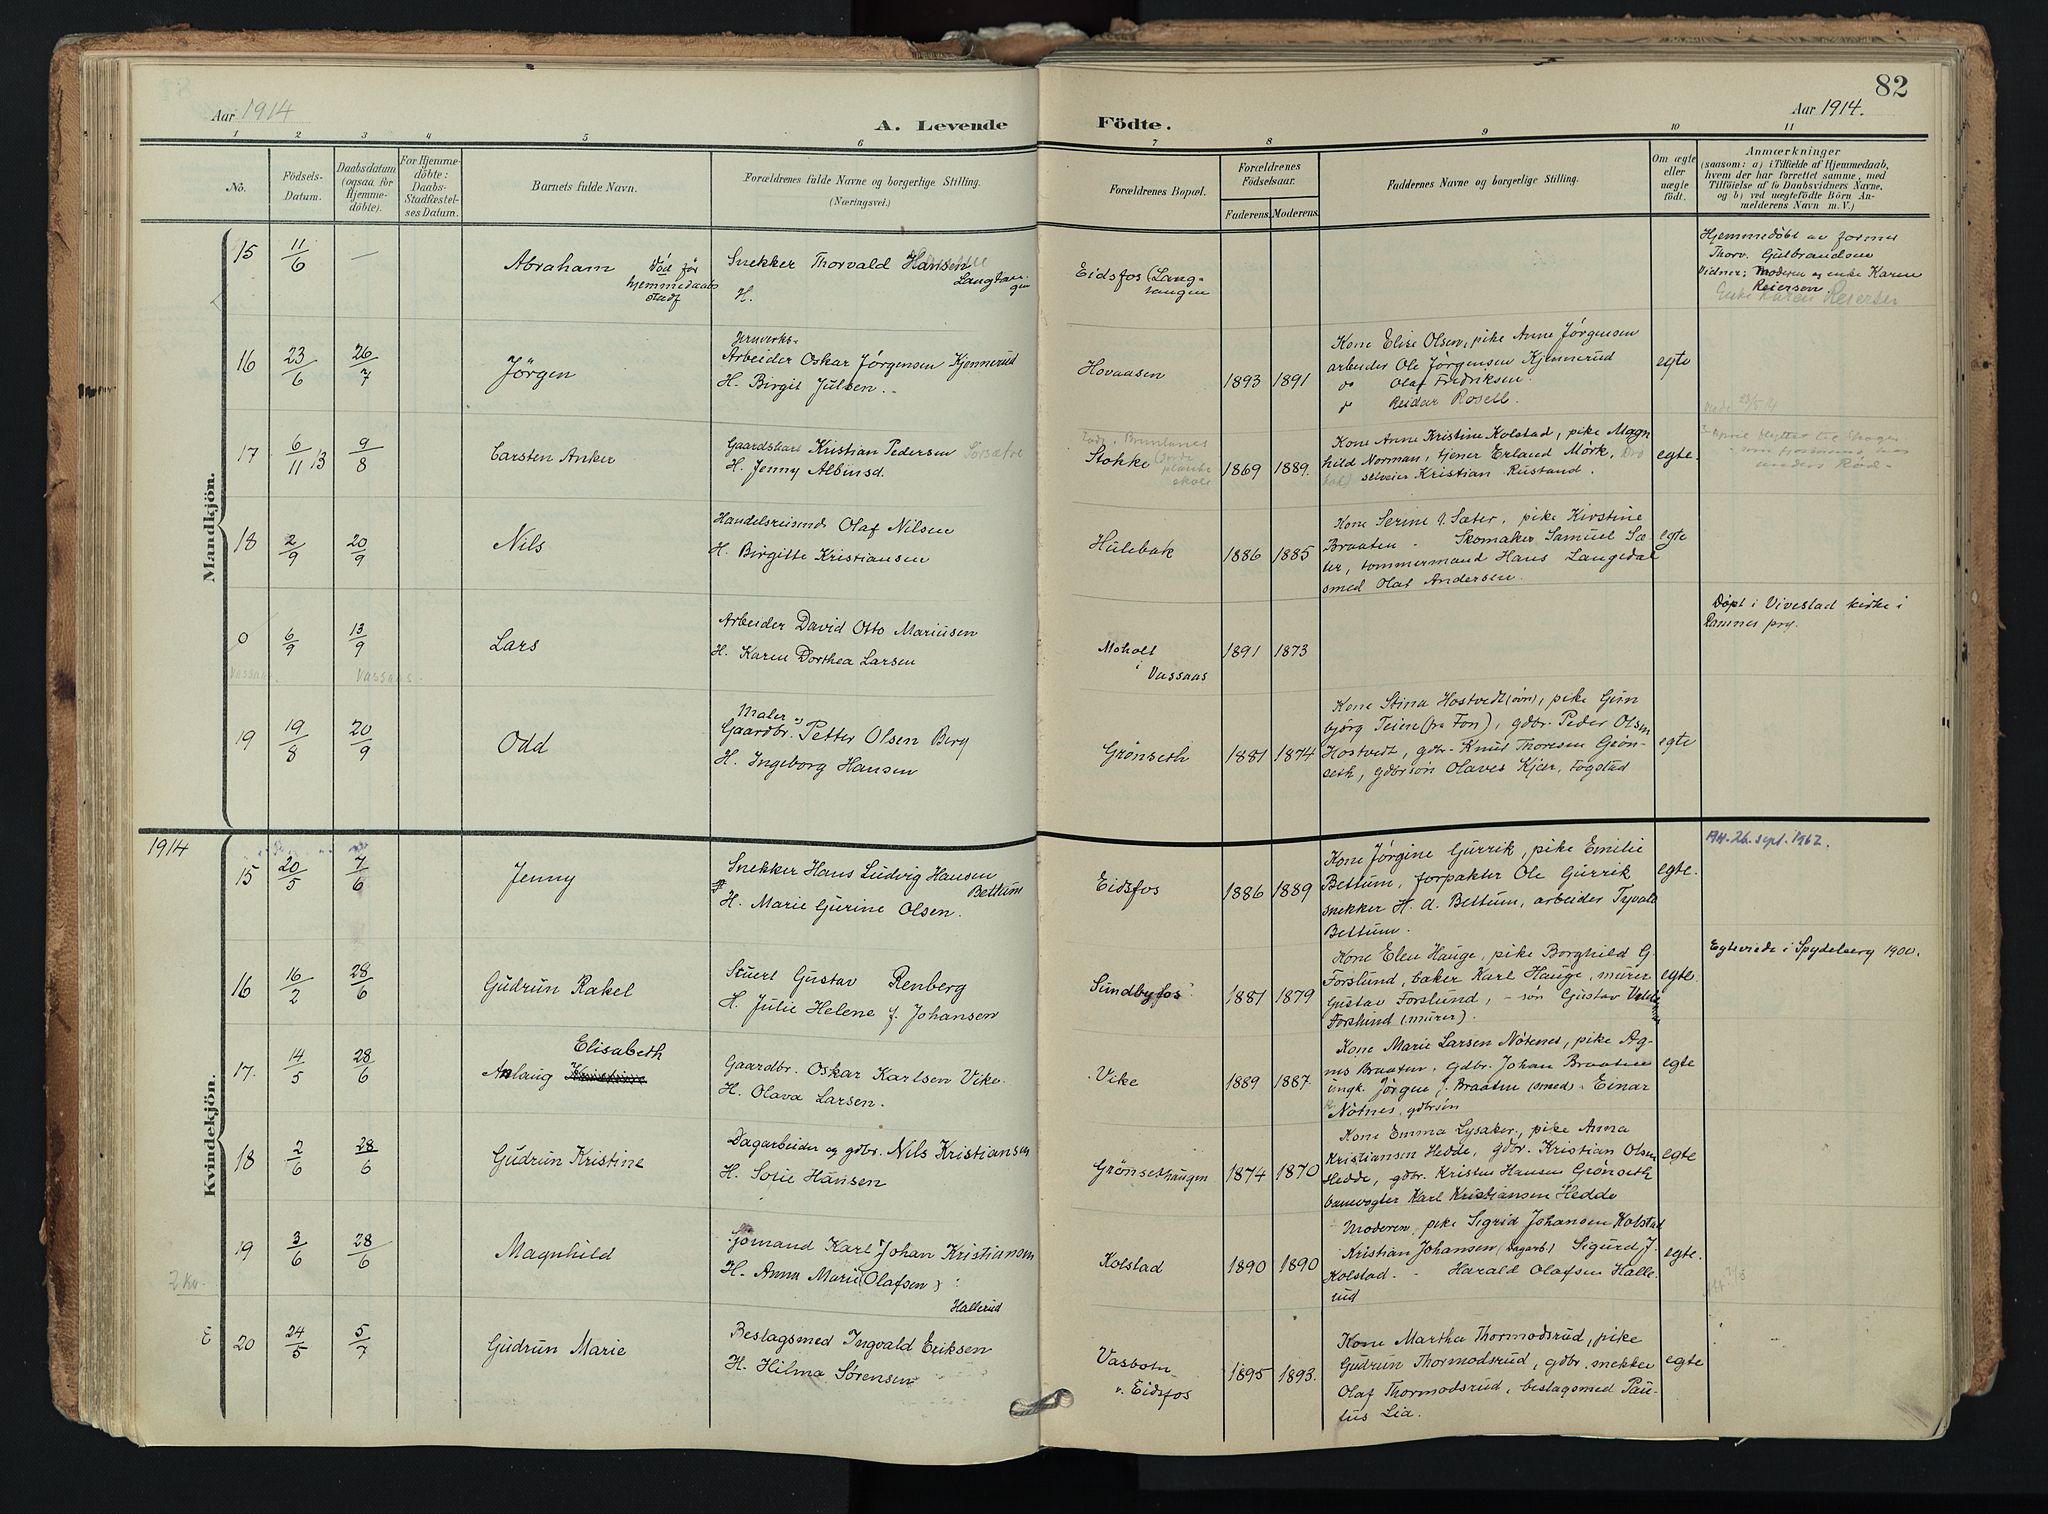 82
Aar 1914
Aar 1914.
A. Levende Födte.
1 2 3 4 5 6 7 8 9 10 11
No.
Födsels-
Datum.
Daabsdatum
(ogsaa for
Hjemme-
döbte).
For Hjemme-
döbte:
Daabs-
Stadfæstel-
ses Datum.
Barnets fulde Navn.
Forældrenes fulde Navne og borgerlige Stilling.
(Næringsvei.)
Forældrenes Bopæl.
Forældrenes
Födselsaar.
Faderens. Moderens.
Faddernes Navne og borgerlige Stilling.
Om ægte
eller
uægte
födt.
Anmærkninger
(saasom: a) i Tilfælde af Hjemmedaab,
hvem der har forrettet samme, med
Tilföielse af to Daabsvidners Navne,
og b) ved uægtefödte Börn An-
melderens Navn m. V.)
Mandkjön.
15 11/6 —
Abraham Död før
hjemmedaabs
stadf
Snekker Thorvald Hansen
Langtan-
gen
H.
Eidsfos (Lang-
tangen
Hjemmedöbt av former
Thorv. Gulbrandsen
Vidner: Moderen og enke Karen
Reiersen
Enke Karen Reiersen
16 23/6 26/7
Jörgen
Jernverks-
Arbeider Oskar Jörgensen Kjennerud
H. Birgit Julsen.
Hovaasen
1893 1891
Kone Elise Olsen, pike Anne Jörgensen
arbeider Ole Jörgensen Kjennerud
do Olaf Fredriksen.
do Reidar Rosell.
egte
17 6/11 13 9/8
Carsten Anker
Gaardsbest Kristian Pedersen Sörsætre
H. Jenny Albinsd.
Brunlanes
Stokke
plante
skole
1869 1889.
Kone Anne Kristine Kolstad, pike Magn
hild Norman, tjener Erland Mörk,
selveier Kristian Rustand.
egte.
18 2/9 20/9
Nils
Handelsreisende Olaf Nilsen
H. Birgitte Kristiansen
Hulebak
1886 1885
Kone Serine J. Sæter, pike Kirstine
Braaten - Skomaker Samuel Sæ-
ter, tømmermand Hans Langedal
smed Olaf Andersen.
egte
0 6/9 13/9
Vassaas. Vassaas.
Lars
Arbeider David Otto Mariusen
H. Karen Dorthea Larsen
Moholt
i
Vassaas
1891 1873
Døpt i Vivestad kirke i
Ramnes prg.
19 19/8 20/9
Odd
Maler
Gaardbr. Petter Olsen Berg
H. Ingeborg Hansen
Grönseth
1881 1874
Kone Stina Hostvedt (övr), pike Gun
björg Teien (fra Fon), gdbr. Peder Olsen
Hostvedt, gdbr. Knut Thoresen Grön-
seth, gdbrsön Olaves Kjær, Fogstad
egte
1914
Kvindekjön.
15 20/5 7/6
Jenny
Snekker Hans Ludvig Hansen
Bettum
H. Marie Gurine Olsen.
Eidsfos
1886 1889
Kone Jörgine Gurrik, pike Emilie
Bettum, forpakter Ole Gurrik
snekker H. A. Bettum, arbeider Tyvald
Bettum.
egte.
26. sept. 1962.
16 16/2 28/6
Gudrun Rakel
Stuert Gustav Renberg
H. Julie Helene f. Johansen
Sundbyfos
1881 1879
Kone Elen Hauge, pike Borghild G.
Forslund, baker Karl Hauge, murer
Gustav Forslund, - søn Gustav
Forslund (murer).
egte.
Egteviede i Spydeberg 1900.
17. 14/5 28/6
Elisabeth
Aslaug Kristine
Gaardbr. Oskar Karlsen Vike
H. Olava Larsen.
Vike
1889 1887
Kone Marie Larsen Nötenes, pike Ag-
nes Braaten, gdbr. Johan Braaten
ungk. Jörgen J. Braaten (smed) - Einar
Nötnes, gdbrsön
egte
18 2/6 28/6
Gudrun Kristine
Dagarbeider og gdbr. Nils Kristiansen
H. Sofie Hansen
Grönsethhaugen
1874 1870
Kone Emma Lysaker, pike Anna
Kristiansen Hedde, gdbr. Kristian Olsen
Hedde, gdbr. Kristen Hansen Grönseth
banevogter Karl Kristiansen Hedde
egte
2 kv.
19 3/6 28/6
Magnhild
Sjömand Karl Johan Kristiansen
H. Anna Marie (Olafsen)
Hallerud
Kolstad
1890 1890
Moderen, pike Sigrid Johansen Kolstad
Kristian Johansen (Dagarb.) Sigurd J.
Kolstad. - Harald Olafsen Halle-
rud
egte.
E 20 24/5 5/7
Gudrun Marie
Beslagsmed Ingvald Eriksen
H. Hilma Sörensen
Vasbotn
v. Eidsfos
1895 1893.
Kone Martha Thormodsrud, pike
Gudrun Thormodsrud, gdbr. snekker
Olaf Thormodsrud, beslagsmed Pau-
lus Lia.
egte